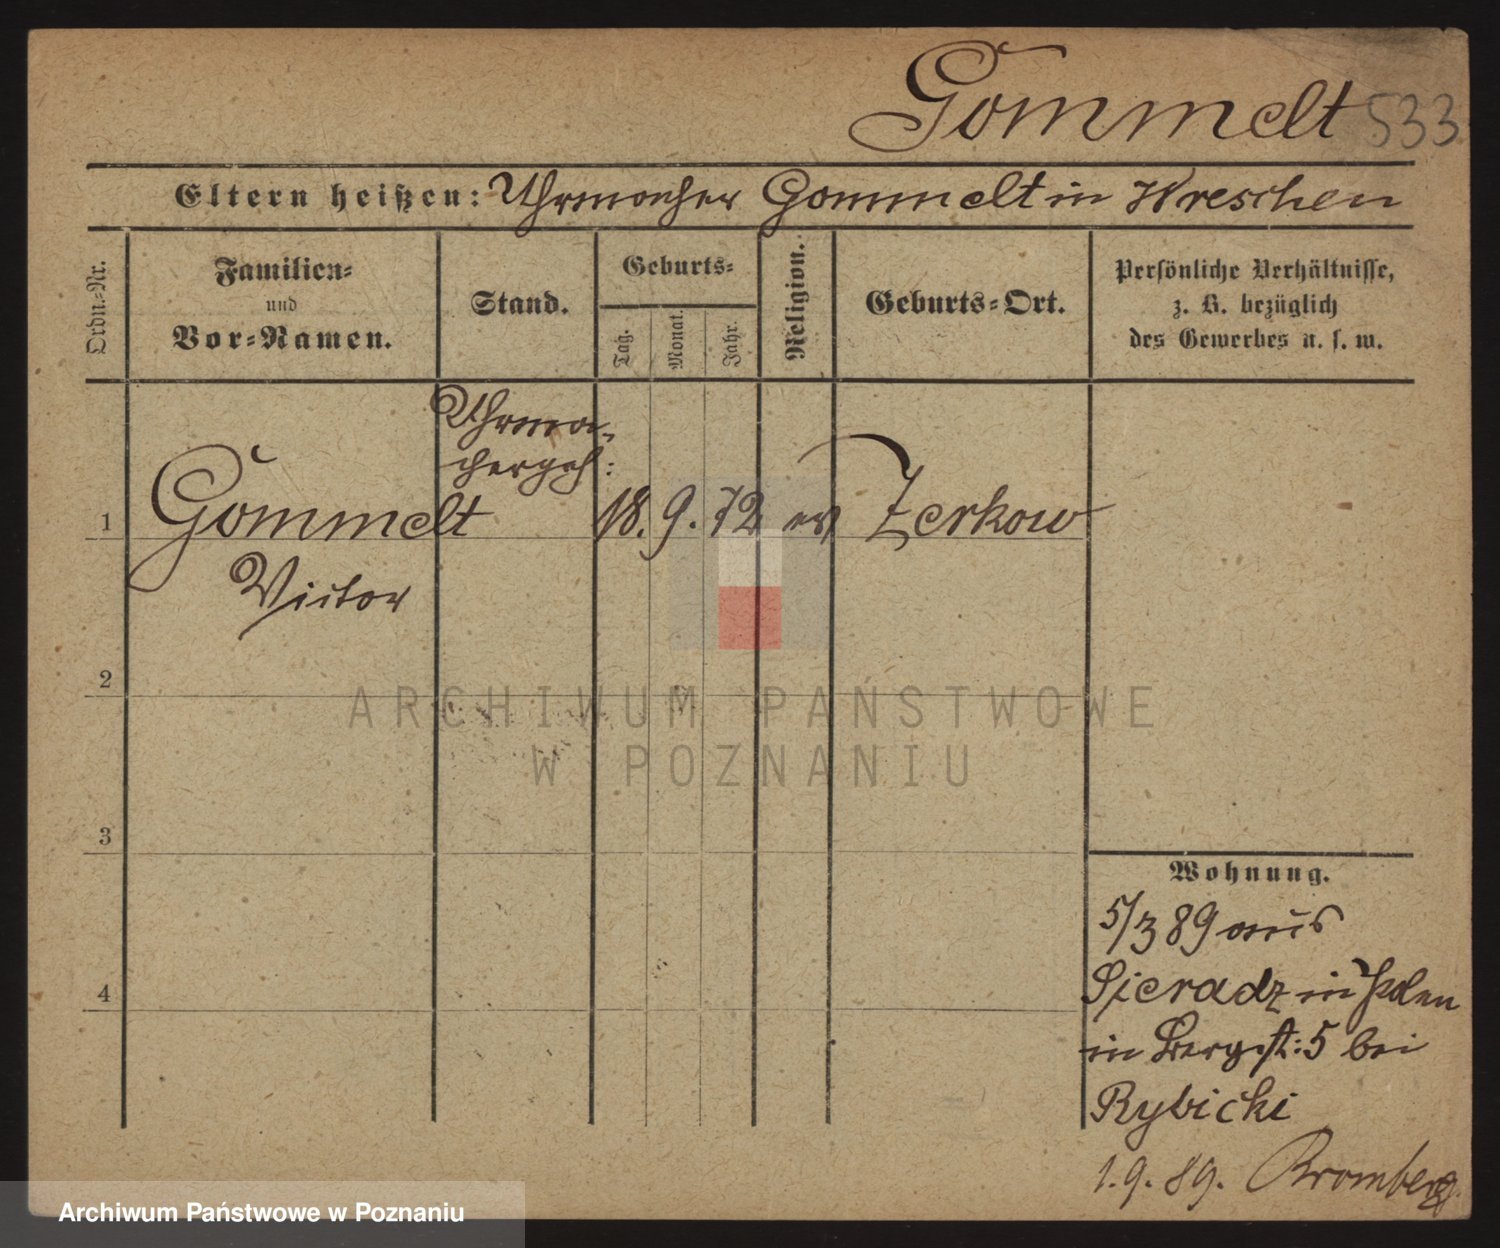 Gommelt 533
Eltern heißen: Uhrmacher Gommelt in Wreschen
Ordn.=Nr.
Familien=
und
Vor=Namen.
Stand.
Geburts=
Tag.
Monat.
Jahr.
Religion.
Geburts=Ort.
Persönliche Verhältnisse,
z. B. bezüglich
des Gewerbes u. s. w.
Uhrma-
chergeh:
1 Gommelt 18. 9. 72 ev Zerkow
Victor
2
3
4
Wohnung.
5/3 89 aus
Sieradz in Polen
in Bergst: 5 bei
Rybicki
1. 9. 89. Bromberg.
ARCHIWUM PAŃSTWOWE
W POZNANIU
Archiwum Państwowe w Poznaniu